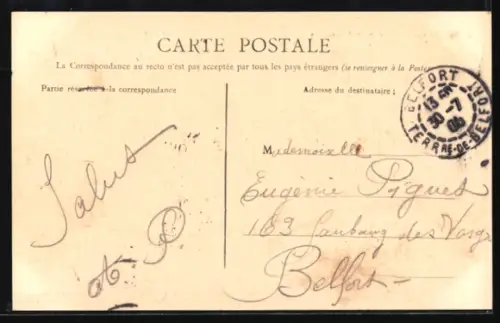 CARTE POSTALE
La Correspondance au recto n'est pas acceptée par tous les pays étrangers (se renseigner à la Poste)
Partie réservée à la correspondance
Adresse du destinataire ;
BELFORT
13
30 -7
TERRE-DE-BELFORT
Mademoiselle
Eugénie
Salut
et
163 Faubourg des Vosges
Belfort